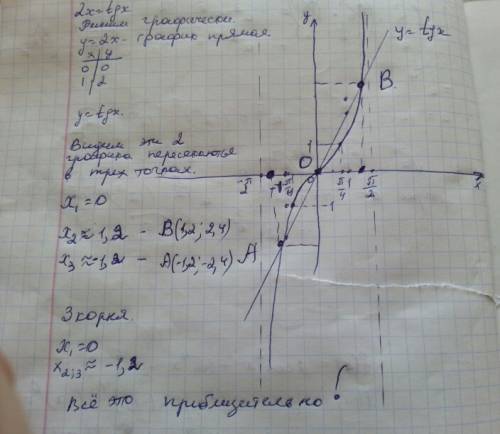 2x=tgx
Решим графически
y=2x - график прямая
x | y
0 | 0
1 | 2
y=tgx.
Видим эти 2
графика пересекаються
в трех точках.
x₁=0
x₂≈1,2 - B(1,2; 2,4)
x₃≈-1,2 - A(-1,2; -2,4)
3 корня.
x₁=0
x₂;₃≈-1,2
Всё это приблизительно!
y
y=tgx
B
1
O
0
-π/2
-1
-π/4
1
π/4
π/2
x
-1
A